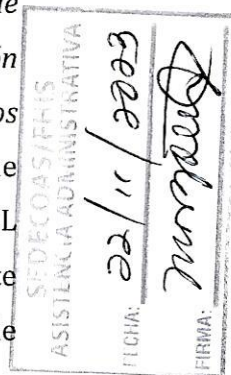 e
ón
os
e
L
te
ne
SEDECOAS/FHIS
ASISTENCIA ADMINISTRATIVA
FECHA: 22/11/2023
FIRMA: